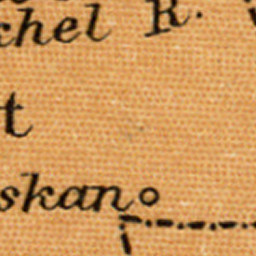 chel R.
t
skan